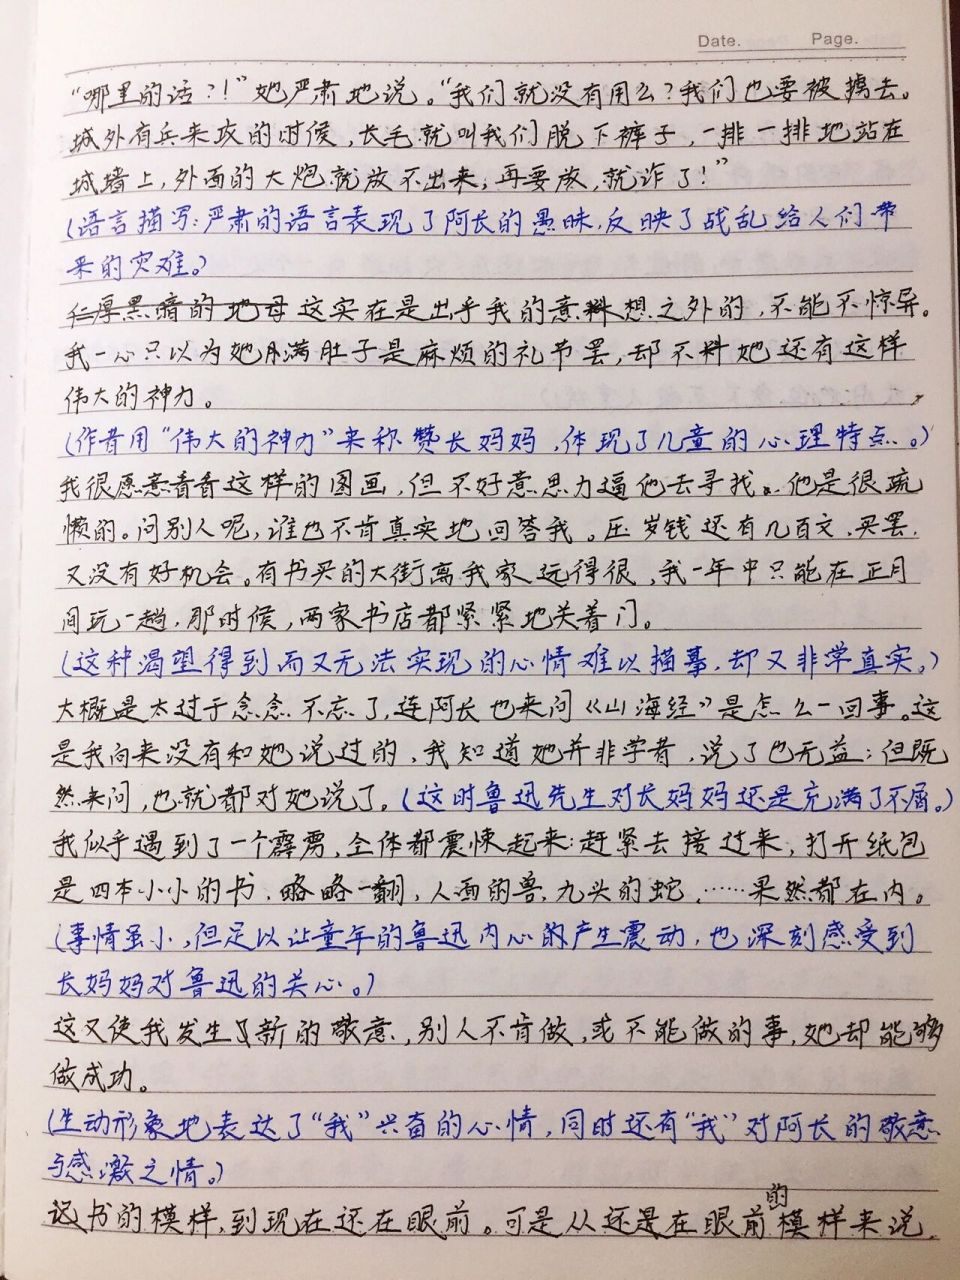 Date.     Page.
“哪里的话?!”她严肃地说。“我们就没有用么?我们也要被掳去。
城外有兵来攻的时候,长毛就叫我们脱下裤子,一排一排地站在
城墙上,外面的大炮就放不出来;再要放,就诈了!”
(语言描写:严肃的语言表现了阿长的愚昧,反映了战乱给人们带
来的灾难。)
仁厚黑暗的地母这实在是出乎我的意料想之外的,不能不惊异。
我一心只以为她满肚子是麻烦的礼节罢,却不料她还有这样
伟大的神力。
(作者用“伟大的神力”来称赞长妈妈,体现了儿童的心理特点。)
我很愿意看看这样的图画,但不好意思力逼他去寻找。他是很疏
懒的。问别人呢,谁也不肯真实地回答我。压岁钱还有几百文,买罢,
又没有好机会。有书买的大街离我家远得很,我一年中只能在正月
间玩一趟,那时候,两家书店都紧紧地关着门。
(这种渴望得到而又无法实现的心情难以描摹,却又非学真实。)
大概是太过于念念不忘了,连阿长也来问《山海经》是怎么一回事。这
是我向来没有和她说过的,我知道她并非学者,说了也无益;但既
然来问,也就都对她说了。(这时鲁迅先生对长妈妈还是充满了不屑。)
我似乎遇到了一个霹雳,全体都震悚起来;赶紧去接过来,打开纸包
是四本小小的书,略略一翻,人面的兽,九头的蛇,……果然都在内。
(事情虽小,但足以让童年的鲁迅内心的产生震动,也深刻感受到
长妈妈对鲁迅的关心。)
这又使我发生了新的敬意,别人不肯做,或不能做的事,她却能够
做成功。
(生动形象地表达了“我”兴奋的心情,同时还有“我”对阿长的敬意
与感激之情。)
记书的模样,到现在还在眼前。可是从还是在眼前的模样来说,